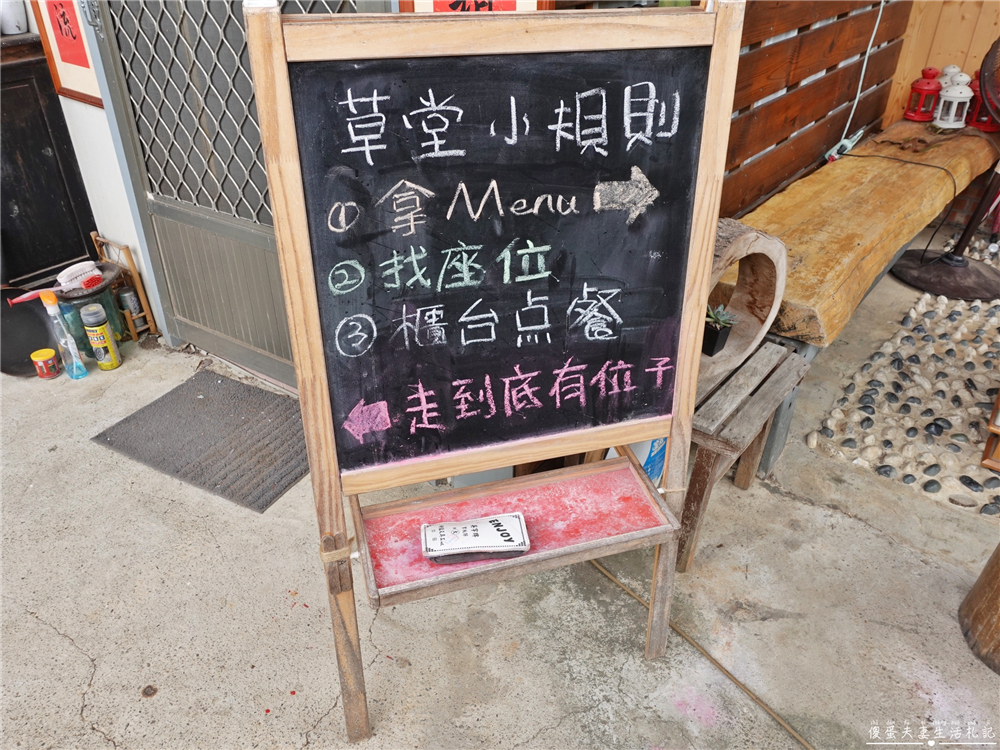 流
草堂小規則
① 拿Menu
② 找座位
③ 櫃台点餐
走到底有位子
ENJOY
傻蛋夫妻生活札記